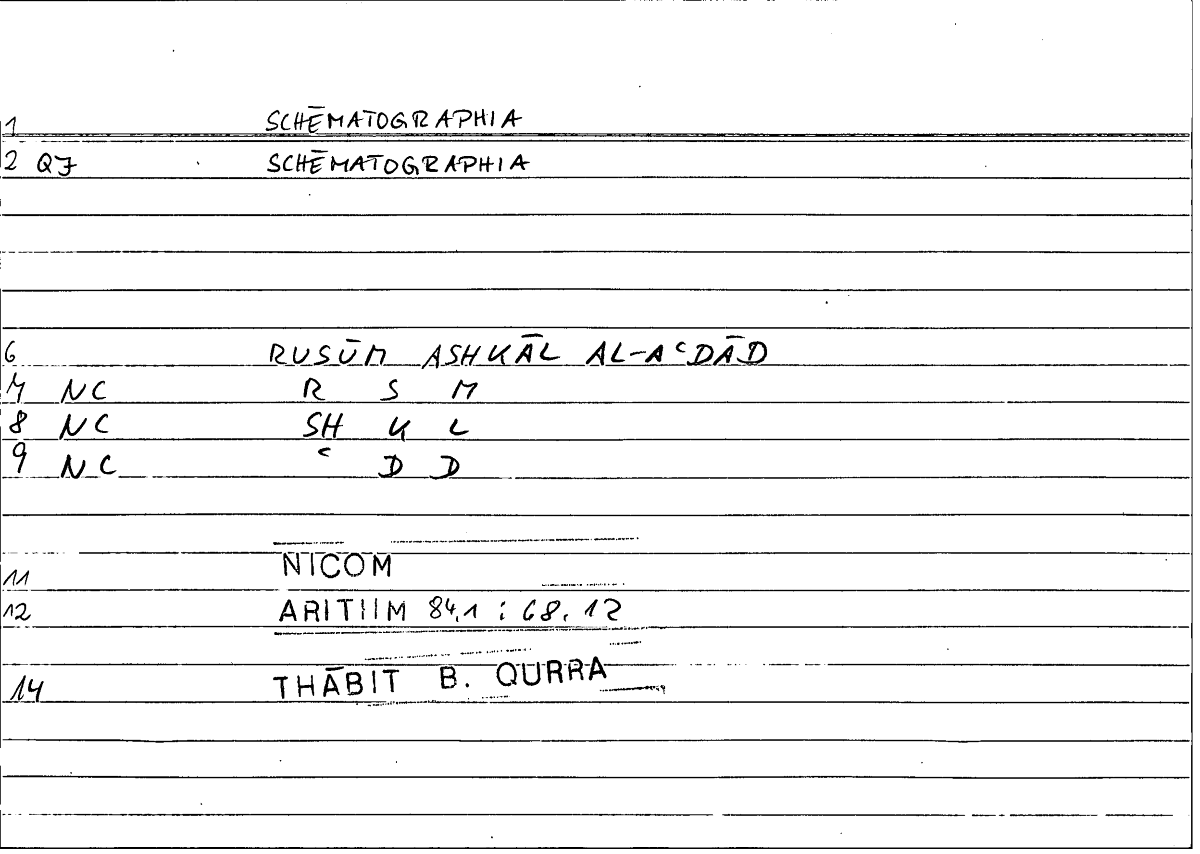 1 SCHĒMATOGRAPHIA
2 QF SCHĒMATOGRAPHIA
6 RUSŪM ASHKĀL AL-AʿDĀD
7 NC R S M
8 NC SH K L
9 NC ʿ D D
11 NICOM
12 ARITHM 84,1 : 68,12
14 THĀBIT B. QURRA